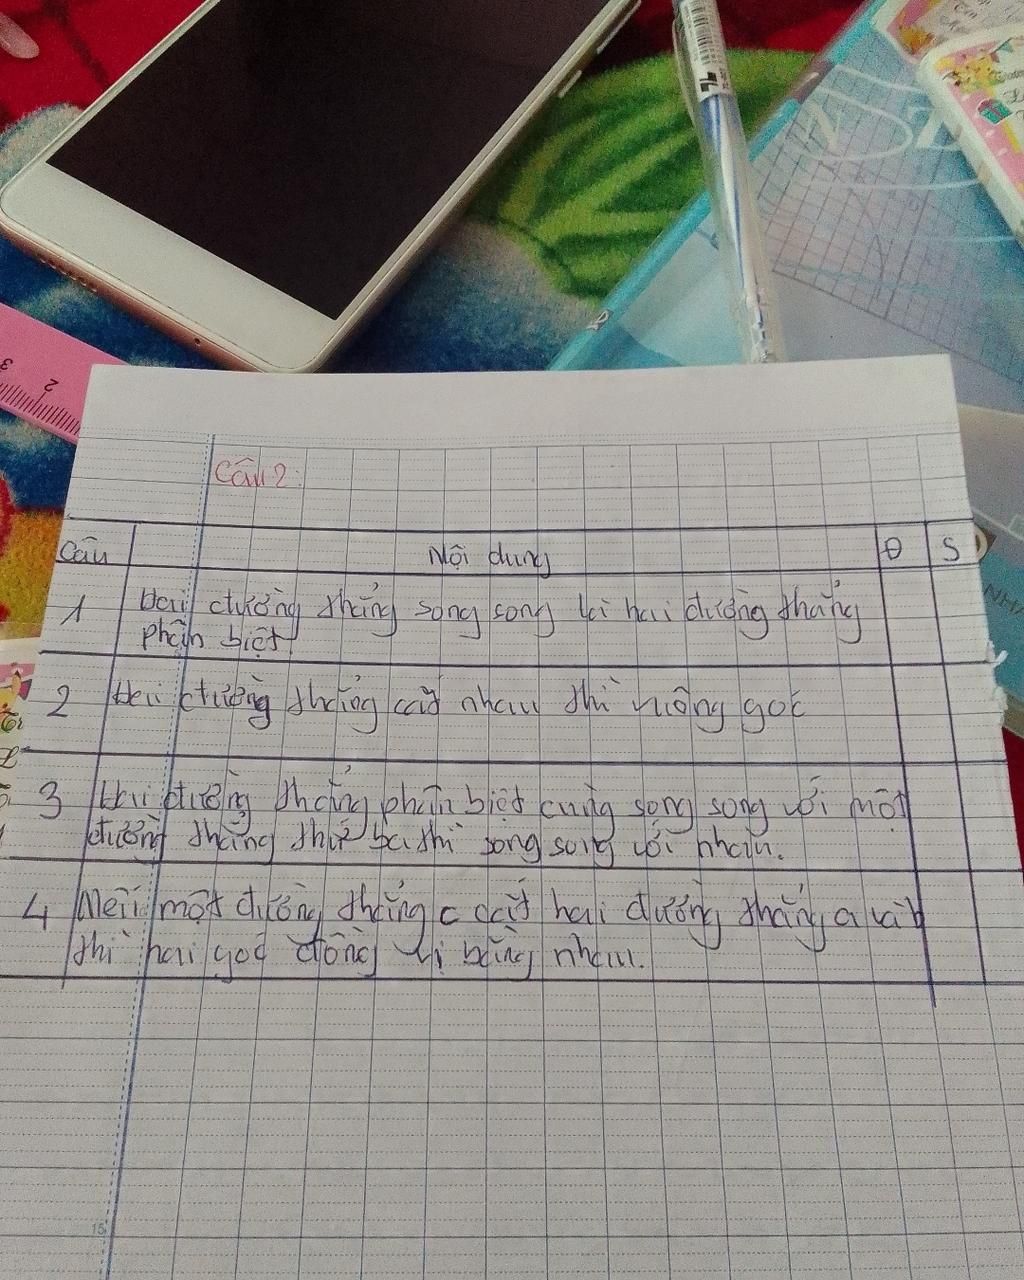 Câu 2:
Câu Nội dung Đ S
1 Hai đường thẳng song song là hai đường thẳng
phân biệt
2 Hai đường thẳng cắt nhau thì vuông góc
3 Hai đường thẳng phân biệt cùng song song với một
đường thẳng thứ ba thì song song với nhau.
4 Nếu một đường thẳng c cắt hai đường thẳng a và b
thì hai góc đồng vị bằng nhau.
15
3 2